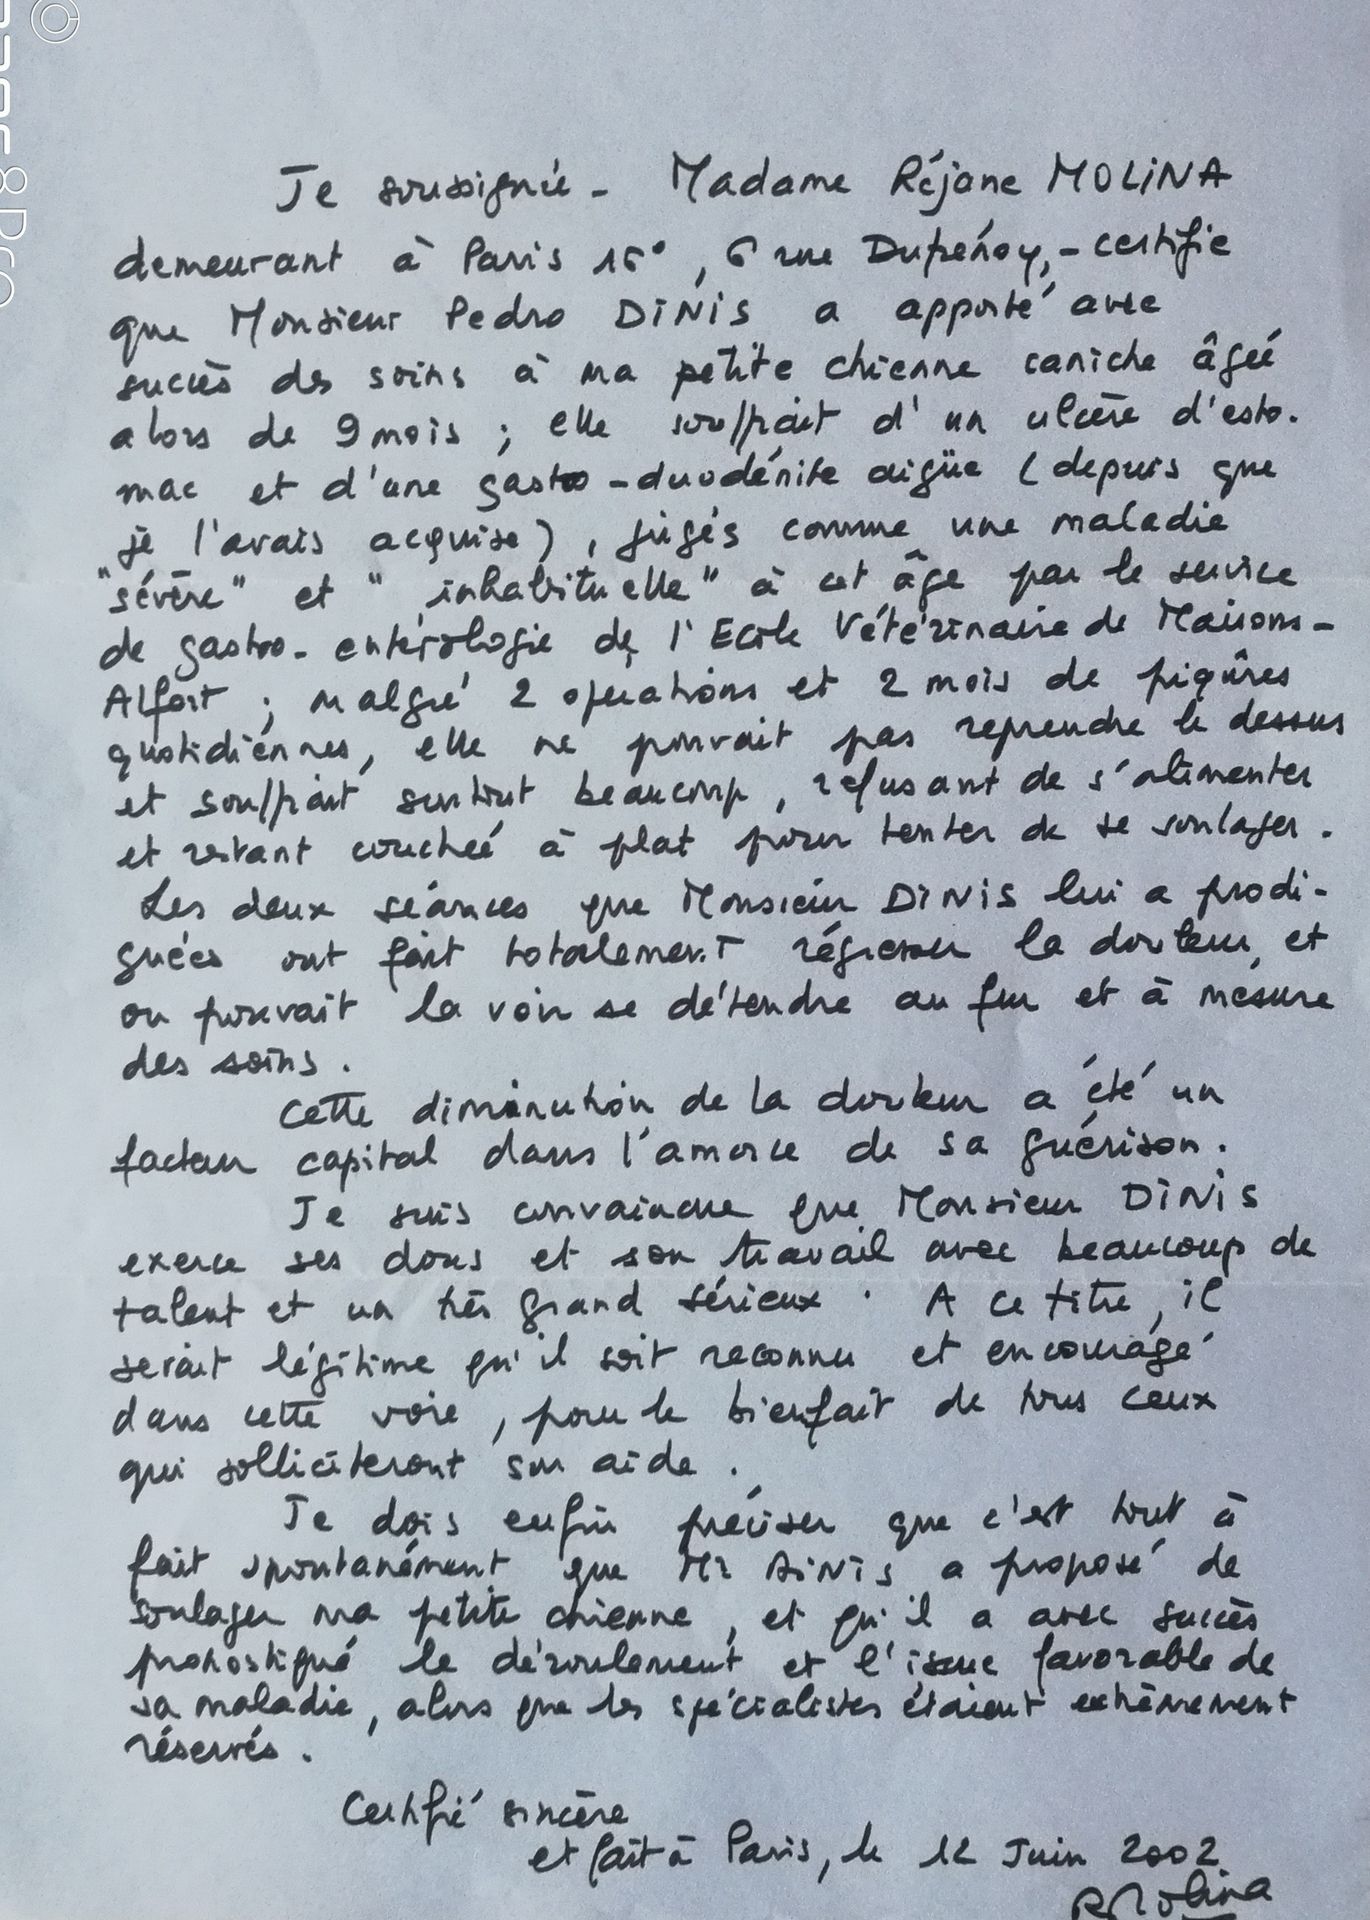 Je soussignée - Madame Réjane MOLINA
demeurant à Paris 16°, 6 rue Dufrénoy, - certifie
que Monsieur Pedro DINIS a apporté avec
succès des soins à ma petite chienne caniche âgée
alors de 9 mois ; elle souffrait d'un ulcère d'esto-
mac et d'une gastro-duodénite aigüe (depuis que
je l'avais acquise), jugés comme une maladie
"sévère" et "inhabituelle" à cet âge par le service
de gastro-entérologie de l'Ecole Vétérinaire de Maisons-
Alfort ; malgré 2 opérations et 2 mois de piqûres
quotidiennes, elle ne pouvait pas reprendre le dessus
et souffrait surtout beaucoup, refusant de s'alimenter
et restant couchée à plat pour tenter de se soulager.
Les deux séances que Monsieur DINIS lui a prodi-
guées ont fait totalement régresser la douleur, et
on pouvait la voir se détendre au fur et à mesure
des soins.
Cette diminution de la douleur a été un
facteur capital dans l'amorce de sa guérison.
Je suis convaincue que Monsieur DINIS
exerce ses dons et son travail avec beaucoup de
talent et un très grand sérieux. A ce titre, il
serait légitime qu'il soit reconnu et encouragé
dans cette voie, pour le bienfait de tous ceux
qui solliciteront son aide.
Je dois enfin préciser que c'est tout à
fait spontanément que Mr DINIS a proposé de
soulager ma petite chienne, et qu'il a avec succès
pronostiqué le déroulement et l'issue favorable de
sa maladie, alors que les spécialistes étaient extrêmement
réservés.
Certifié sincère
et fait à Paris, le 12 Juin 2002
RMolina